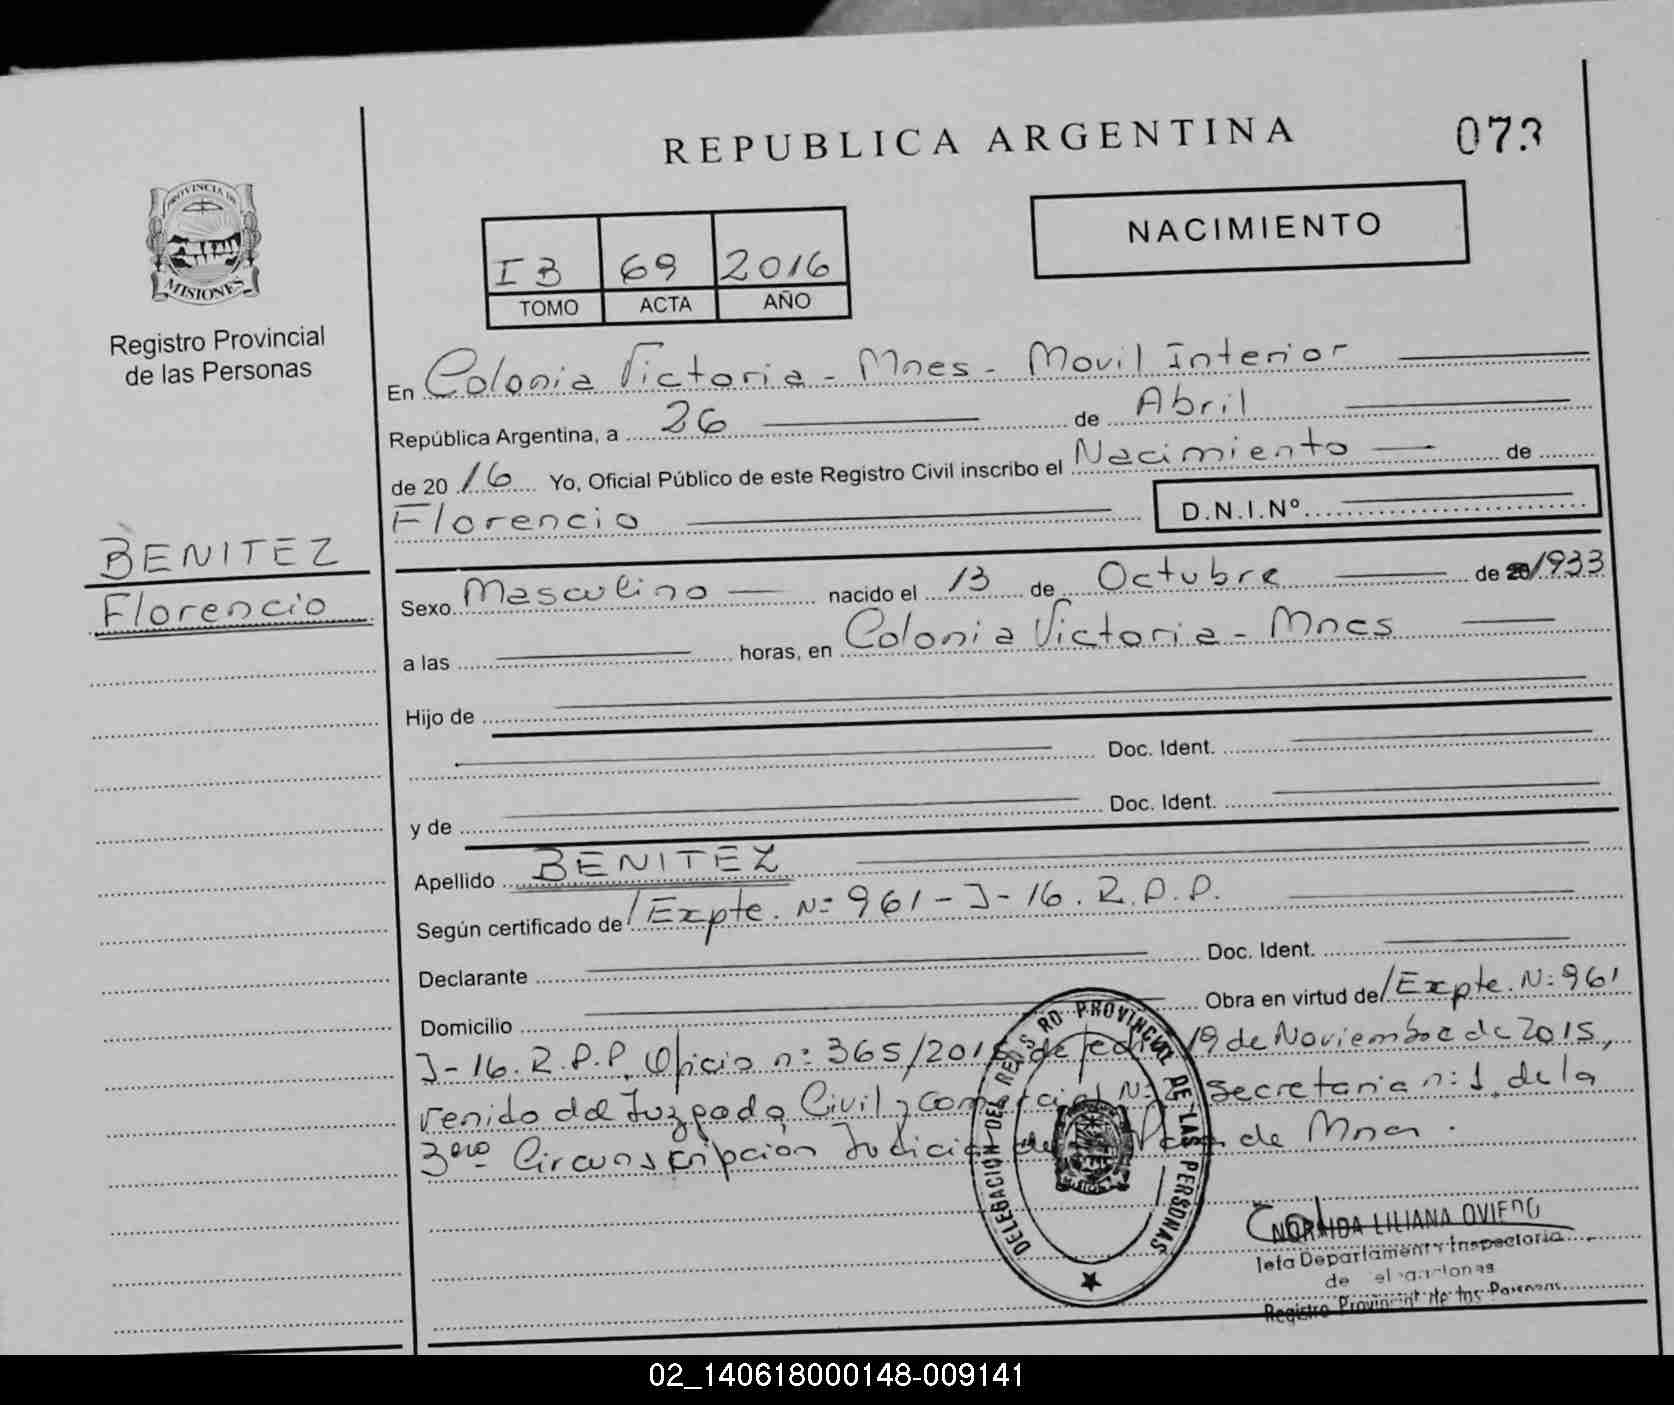 REPUBLICA ARGENTINA
073
PROVINCIA DE
MISIONES
Registro Provincial
de las Personas
NACIMIENTO
IB 69 2016
TOMO ACTA AÑO
En Colonia Victoria - Mnes - Movil Interior
República Argentina, a 26 de Abril
de 2016 Yo, Oficial Público de este Registro Civil inscribo el Nacimiento de
Florencio D.N.I.Nº
BENITEZ
Florencio
Sexo Masculino nacido el 13 de Octubre de 1933
a las horas, en Colonia Victoria - Mnes
Hijo de
Doc. Ident.
y de Doc. Ident.
Apellido BENITEZ
Según certificado de /Expte. Nº 961 - J - 16. R.P.P.
Declarante Doc. Ident.
Domicilio Obra en virtud de /Expte. Nº 961
J - 16. R.P.P. Oficio nº 365/2015 de fecha 19 de Noviembre de 2015,
venido del Juzgado Civil y Comercial Nº secretaria nº 1 de la
3era Circunscripción Judicial de la de Mnes.
DELEGACION DEL REGISTRO PROVINCIAL DE LAS PERSONAS
NORAIDA LILIANA OVIEDO
Jefa Departament Inspectoria
de
Registro Provincial de las Personas
02_140618000148-009141